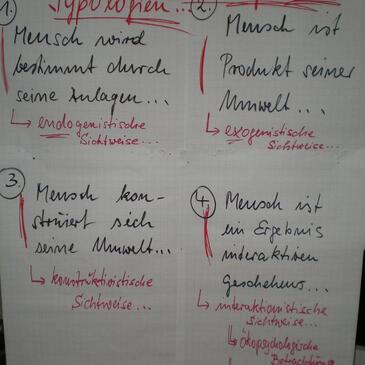 Typologien...
1.
Mensch wird
bestimmt durch
seine Anlagen...
↳ endogenistische
Sichtweise...
2.
Mensch ist
Produkt seiner
Umwelt...
↳ exogenistische
Sichtweise...
3.
Mensch kon-
struiert sich
seine Umwelt...
↳ konstruktivistische
Sichtweise...
4.
Mensch ist
ein Ergebnis
interaktiven
Geschehens...
↳ interaktionistische
Sichtweise...
↳ ökopsychologische
Betrachtung